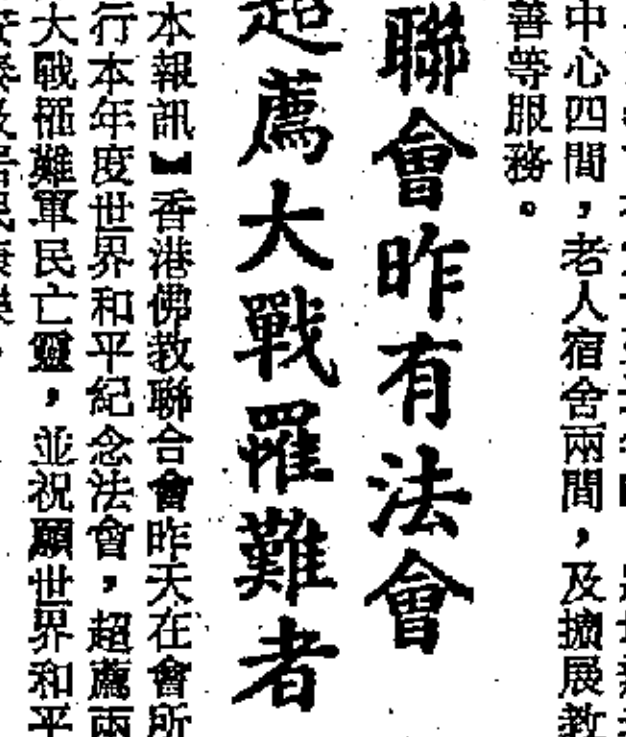 中心四間，老人宿舍兩間，及擴展教
善等服務。
聯會昨有法會
超薦大戰罹難者
本報訊】香港佛教聯合會昨天在會所
行本年度世界和平紀念法會，超薦兩
大戰罹難軍民亡靈，並祝願世界和平